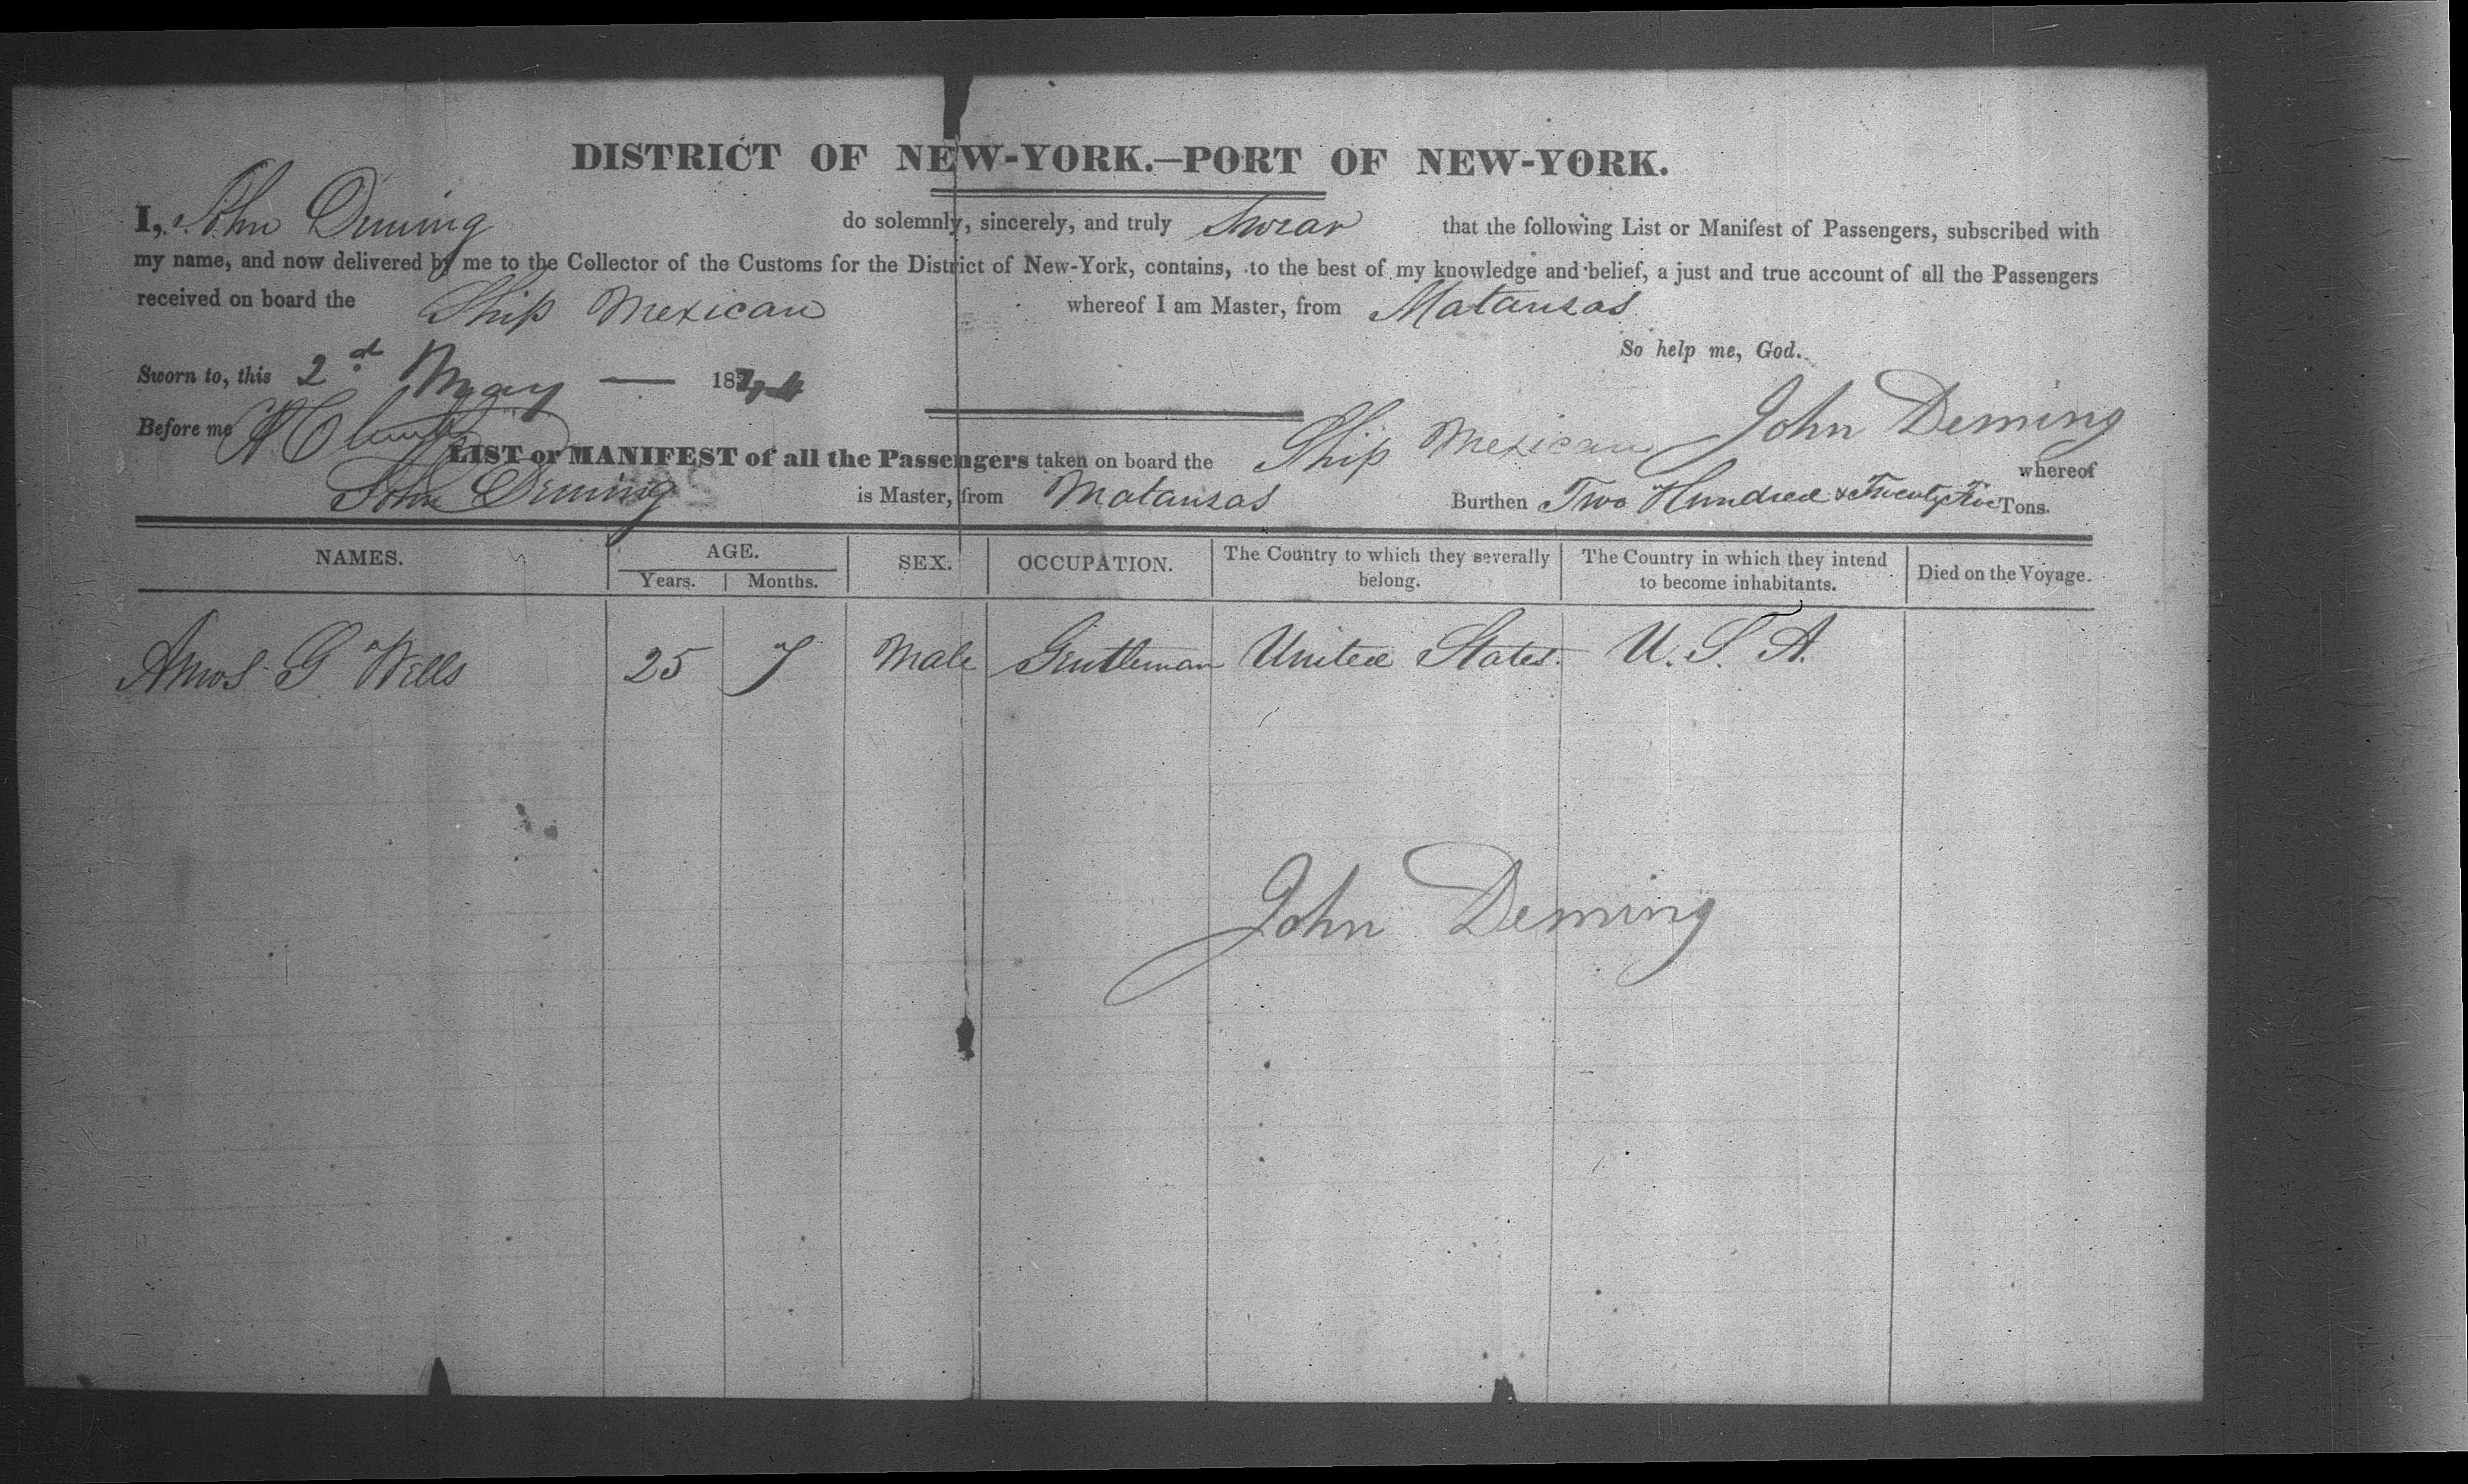 DISTRICT OF NEW-YORK.—PORT OF NEW-YORK.
I, John Deming do solemnly, sincerely, and truly Swear that the following List or Manifest of Passengers, subscribed with
my name, and now delivered by me to the Collector of the Customs for the District of New-York, contains, to the best of my knowledge and belief, a just and true account of all the Passengers
received on board the Ship Mexican whereof I am Master, from Matanzas
So help me, God.
Sworn to, this 2d May — 18
John Deming
Before me
LIST or MANIFEST of all the Passengers taken on board the Ship Mexican whereof
John Deming is Master, from Matanzas Burthen Two Hundred & Twenty Five Tons.
NAMES. AGE. SEX. OCCUPATION. The Country to which they severally belong. The Country in which they intend to become inhabitants. Died on the Voyage.
Years. Months.
Amos G Wells 25 7 Male Gentleman United States. U. S. A.
John Deming